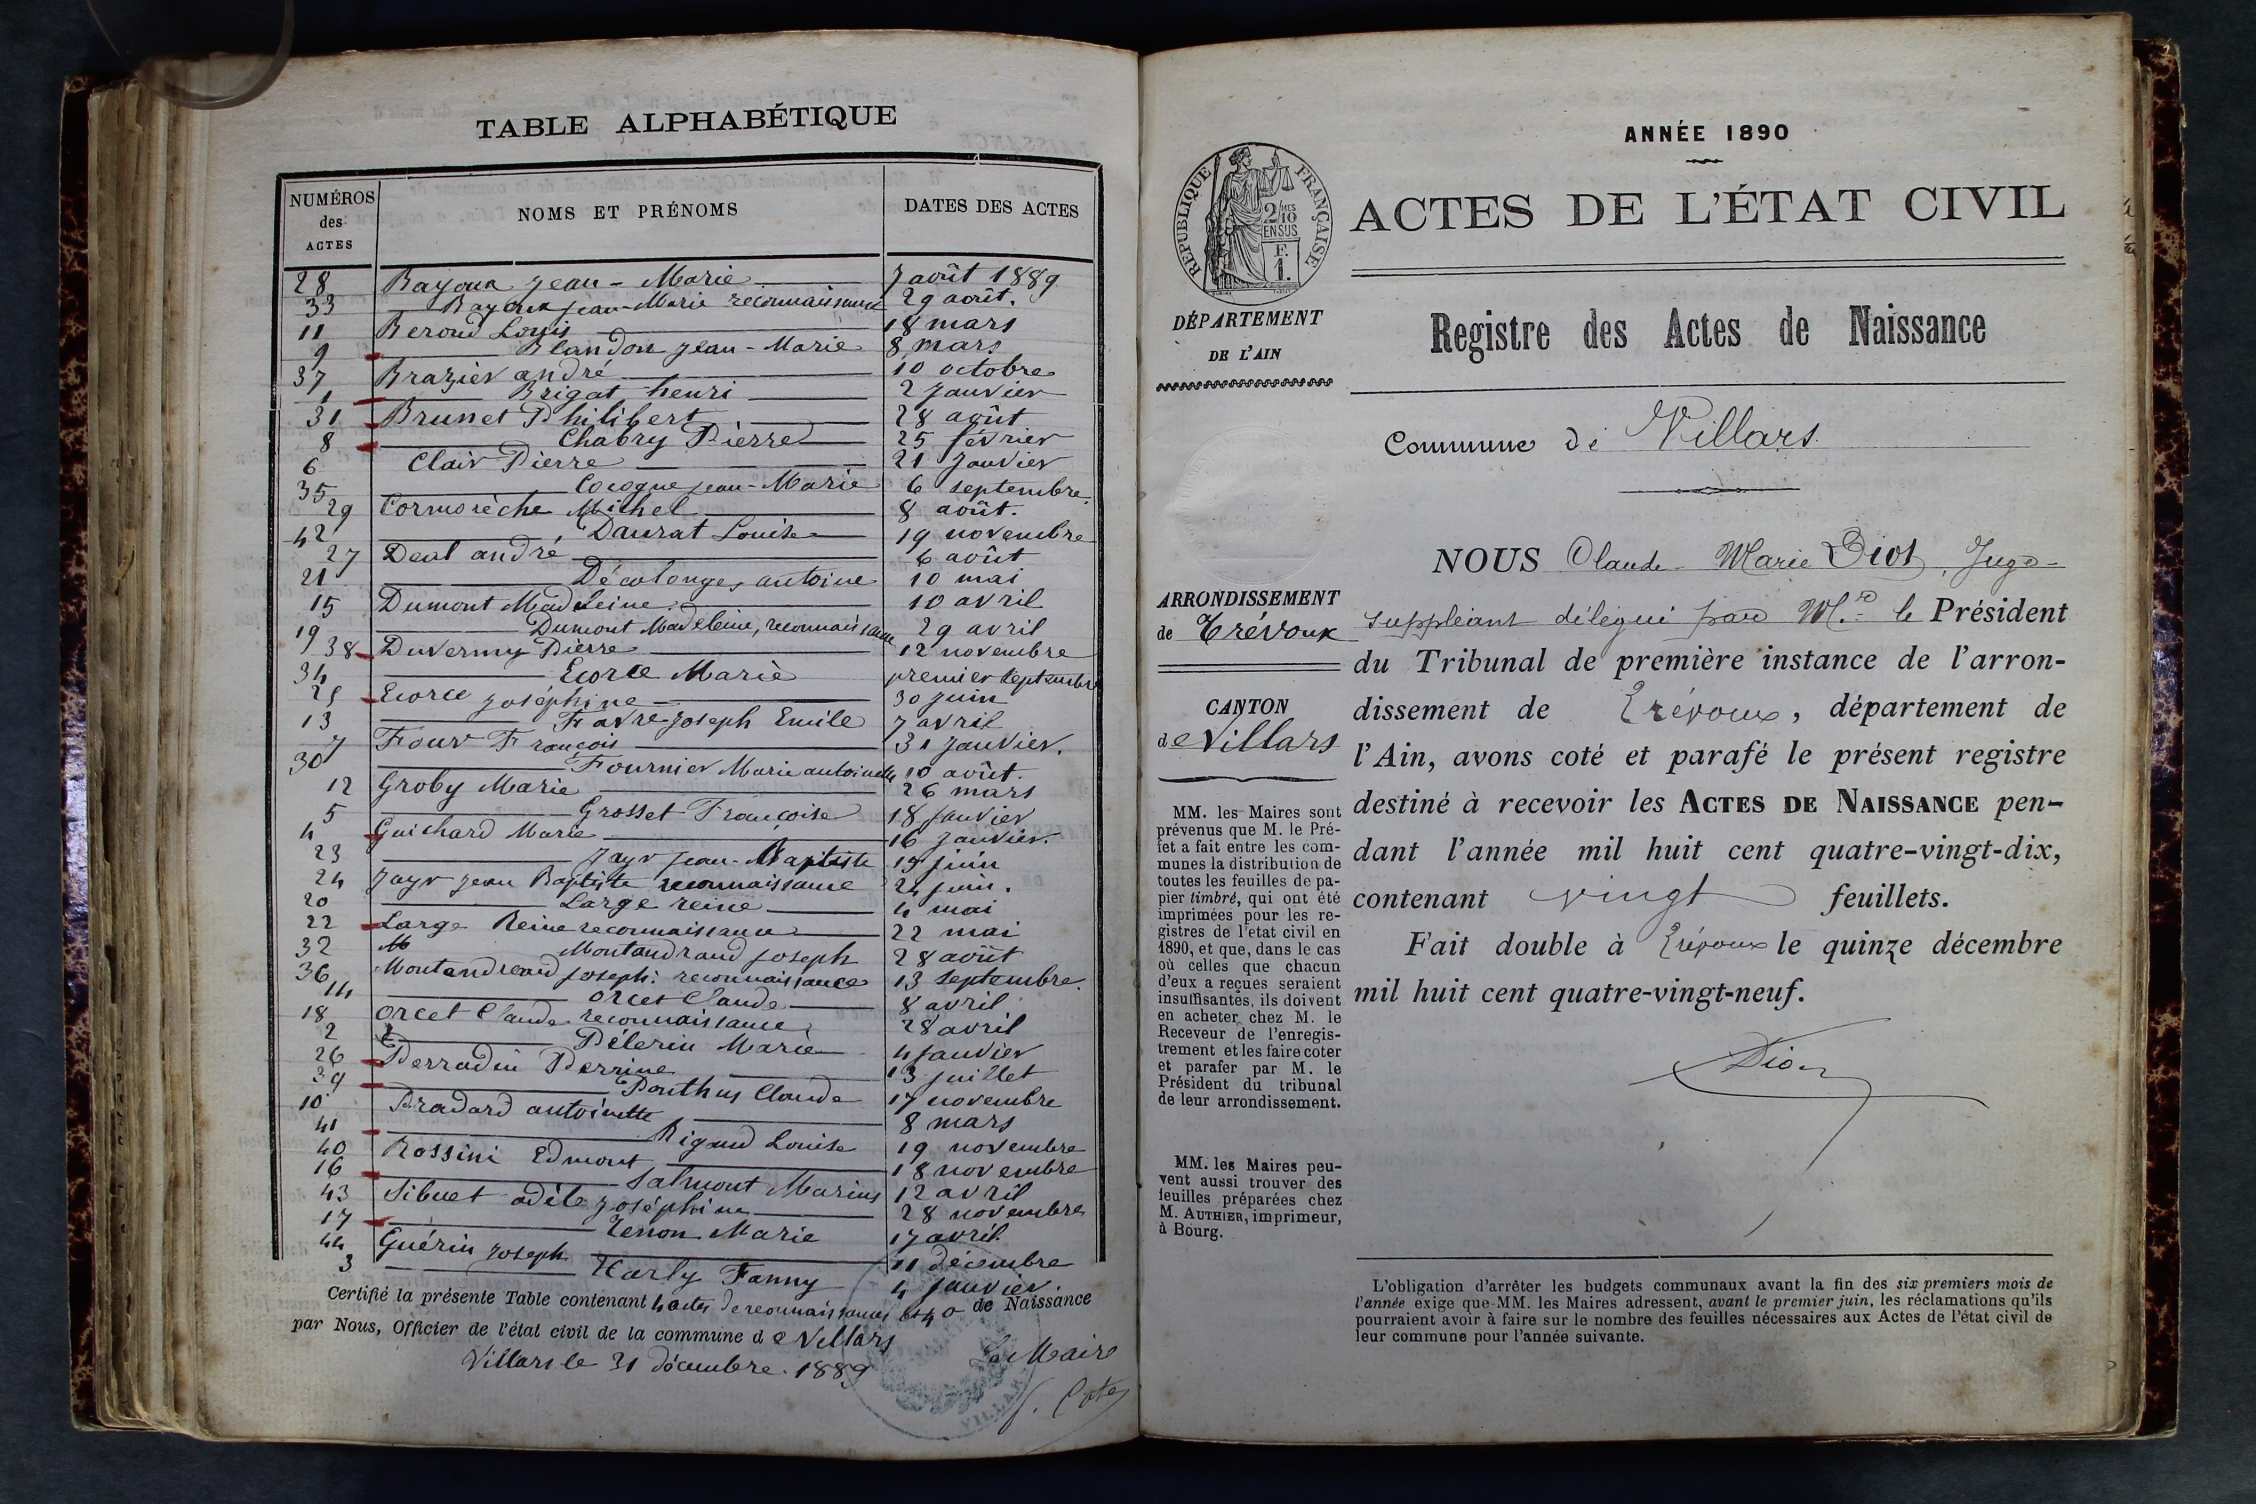 TABLE ALPHABÉTIQUE
NUMÉROS des ACTES
NOMS ET PRÉNOMS
DATES DES ACTES
28 Bayoux Jean-Marie 7 août 1889
33 Bayoux Jean-Marie reconnaissance 29 août.
11 Beroud Louis 18 mars
9 Blandon Jean-Marie 8 mars
37 Brazier andré 10 octobre
1 Brigat henri 2 Janvier
31 Brunet Philibert 28 août
8 Chabry Pierre 25 février
6 Clair Pierre 21 Janvier
35 Cocogne Jean-Marie 6 septembre.
29 Cormorèche Michel 8 août.
42 Daurat Louise 19 novembre
27 Deal andré 6 août
21 Décolonges antoine 10 mai
15 Dumont Madeleine 10 avril
19 Dumont Madeleine, reconnaissance 29 avril
38 Duvernay Pierre 12 novembre
34 Ecorce Marie premier septembre
25 Ecorce Joséphine 30 Juin
13 Favre Joseph Emile 7 avril
7 Four François 31 Janvier.
30 Fournier Marie antoinette 10 août.
12 Groby Marie 26 mars
5 Grosset Françoise 18 Janvier
4 Guichard Marie 16 Janvier.
23 Jayr Jean-Baptiste 19 Juin
24 Jayr Jean Baptiste reconnaissance 24 Juin.
20 Large reine 4 mai
22 Large Reine reconnaissance 22 mai
32 Montandraud Joseph 28 août
36 Montandreaud Joseph: reconnaissance 13 septembre.
14 Orcet Claude 8 avril
18 Orcet Claude reconnaissance 28 avril
2 Pélerin Marie 4 Janvier
26 Perradin Perrine 13 juillet
39 Ponthus Claude 17 novembre
10 Pradard antoinette 8 mars
41 Rigaud Louise 19 novembre
40 Rossini Edmont 18 novembre
16 Salmont Marius 12 avril
43 Sibuet adèle Joséphine 28 novembre
17 Tenon Marie 17 avril
44 Guérin Joseph 11 décembre
3 Fanny 4 Janvier.
Certifié la présente Table contenant 4 actes de reconnaissances et 40 de Naissance
par Nous, Officier de l'état civil de la commune de Villars
Villars le 31 décembre 1889
Le Maire
ANNÉE 1890
RÉPUBLIQUE FRANÇAISE
2/10 EN SUS
F. 1.
ACTES DE L'ÉTAT CIVIL
DÉPARTEMENT
DE L'AIN
Registre des Actes de Naissance
Commune de Villars
ARRONDISSEMENT
de Trévoux
CANTON
de Villars
MM. les Maires sont
prévenus que M. le Pré-
fet a fait entre les com-
munes la distribution de
toutes les feuilles de pa-
pier timbré, qui ont été
imprimées pour les re-
gistres de l'état civil en
1890, et que, dans le cas
où celles que chacun
d'eux a reçues seraient
insuffisantes, ils doivent
en acheter chez M. le
Receveur de l'enregis-
trement et les faire coter
et parafer par M. le
Président du tribunal
de leur arrondissement.
MM. les Maires peu-
vent aussi trouver des
feuilles préparées chez
M. AUTHIER, imprimeur,
à Bourg.
NOUS Claude-Marie Diot, Juge-
suppléant délégué par Mr. le Président
du Tribunal de première instance de l'arron-
dissement de Trévoux, département de
l'Ain, avons coté et parafé le présent registre
destiné à recevoir les ACTES DE NAISSANCE pen-
dant l'année mil huit cent quatre-vingt-dix,
contenant vingt feuillets.
Fait double à Trévoux le quinze décembre
mil huit cent quatre-vingt-neuf.
Diot
L'obligation d'arrêter les budgets communaux avant la fin des six premiers mois de
l'année exige que MM. les Maires adressent, avant le premier juin, les réclamations qu'ils
pourraient avoir à faire sur le nombre des feuilles nécessaires aux Actes de l'état civil de
leur commune pour l'année suivante.